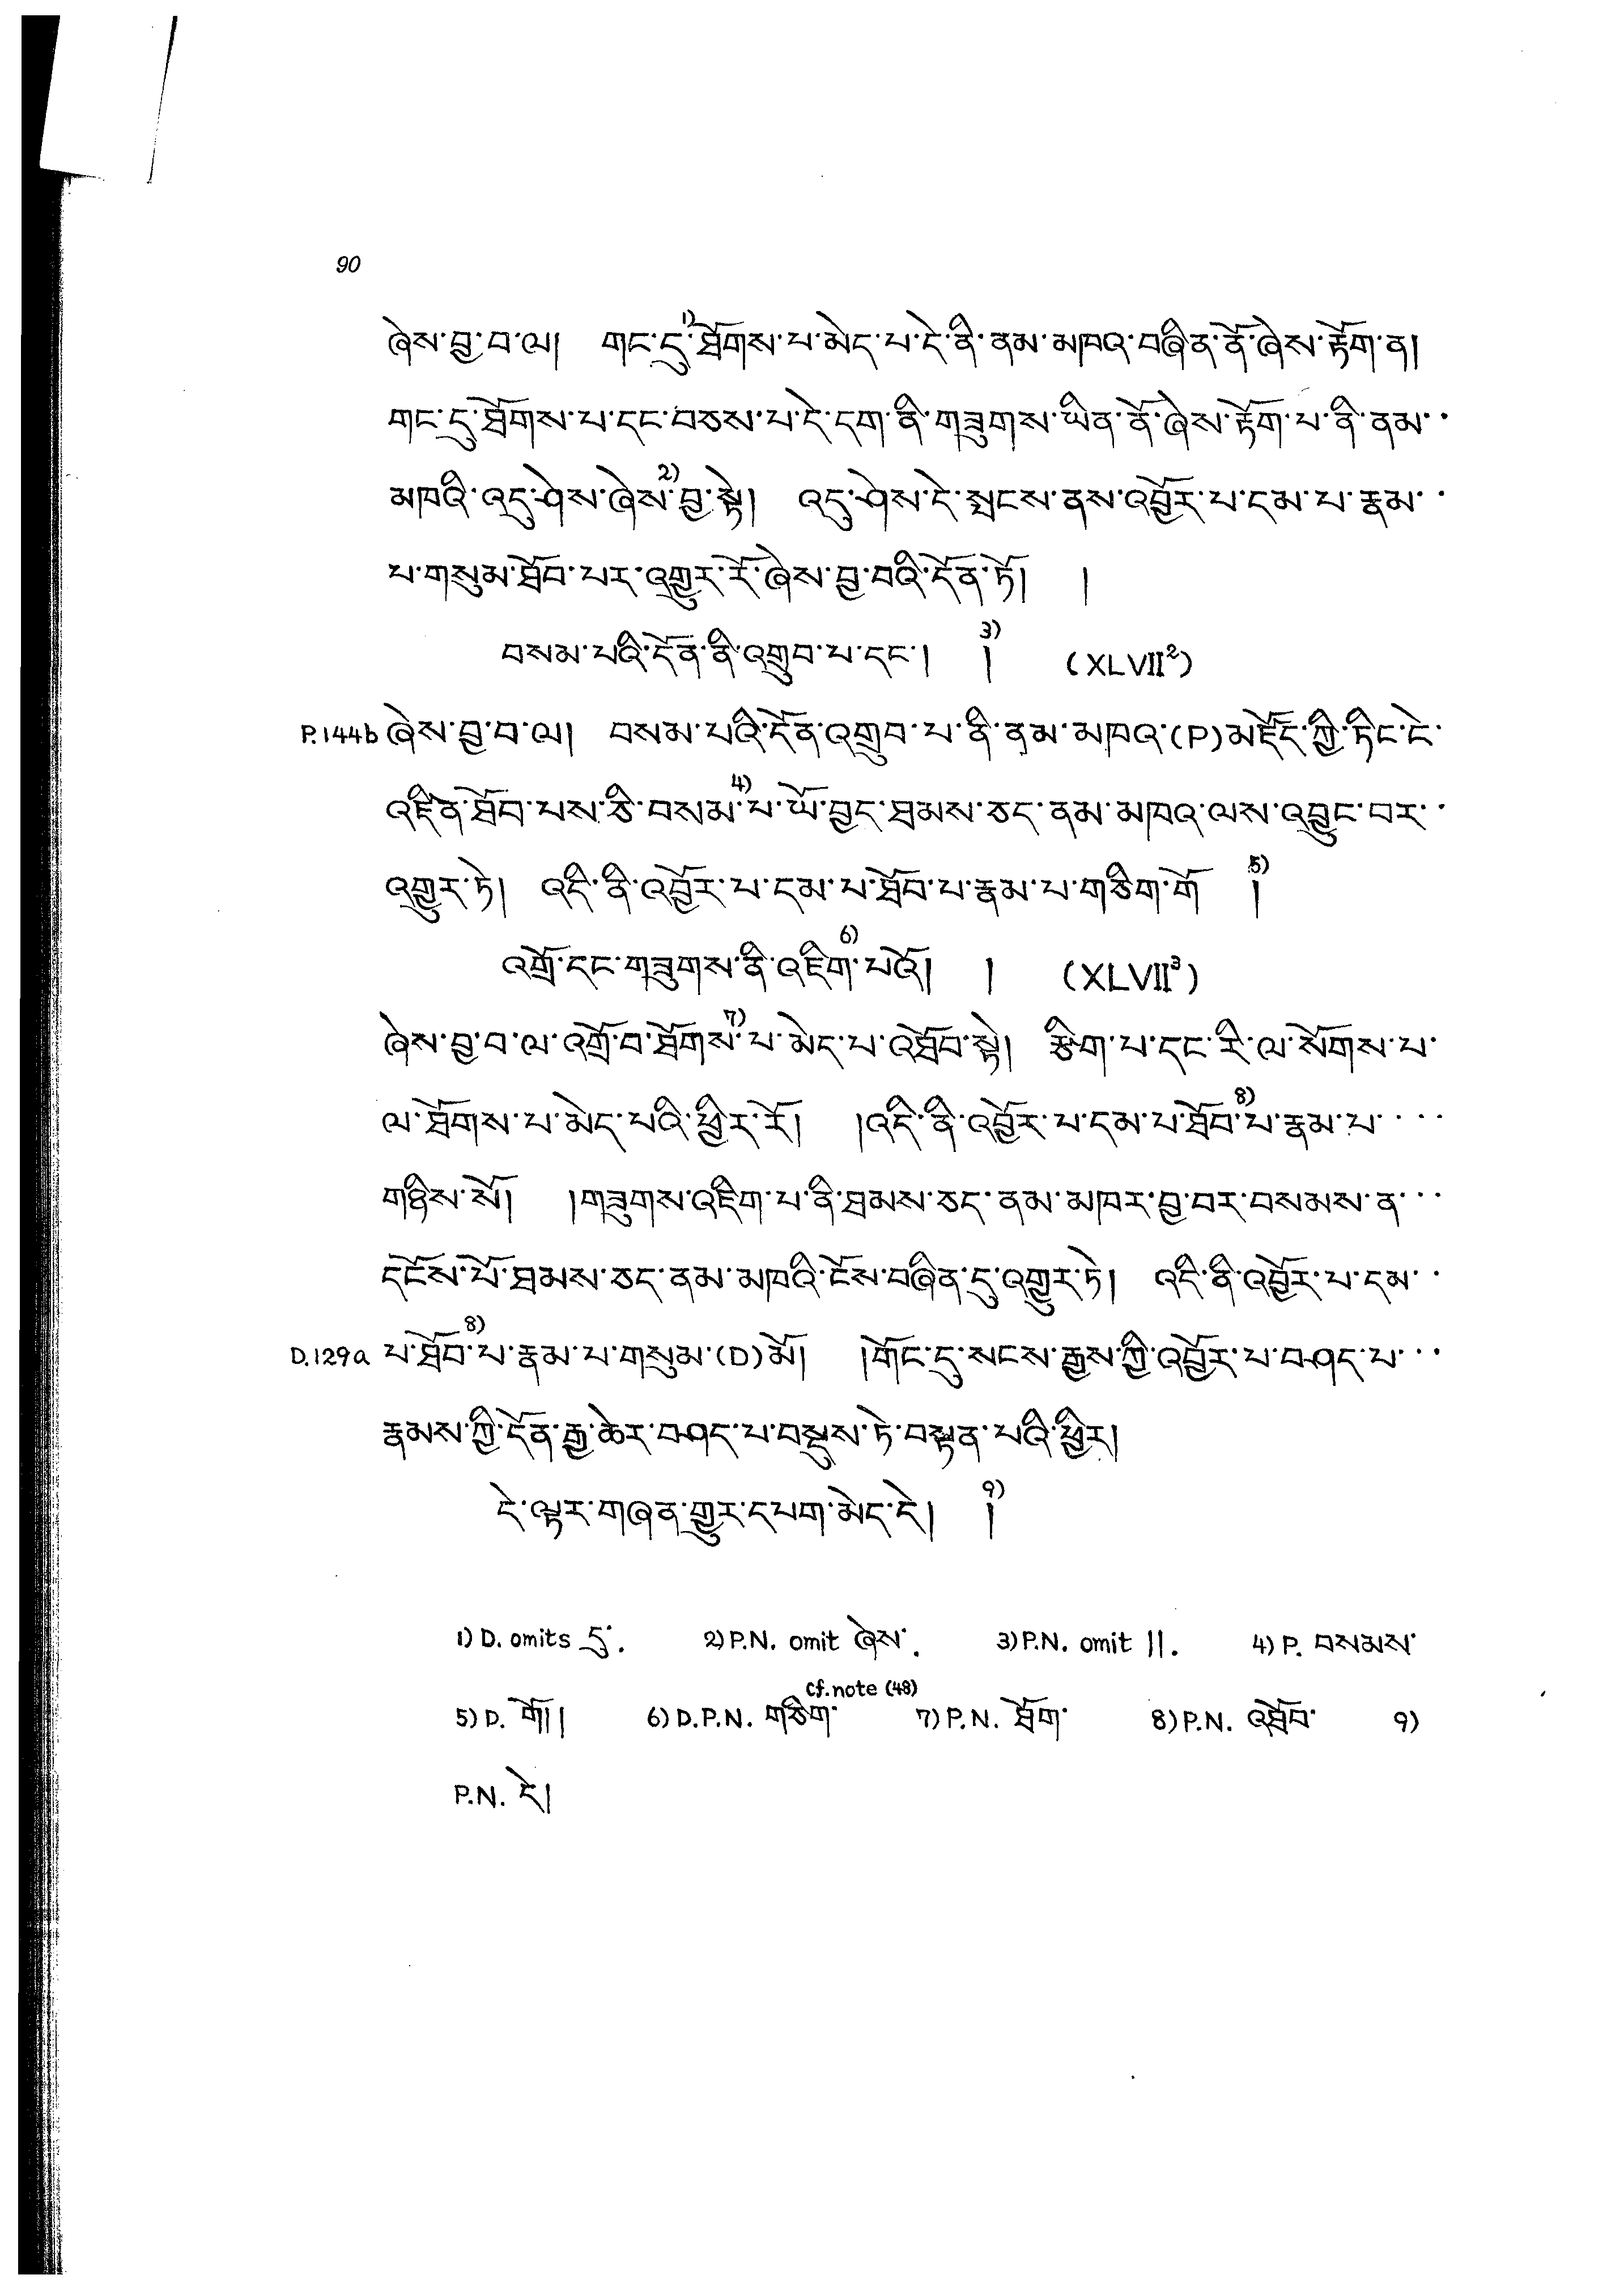 90
ཞེས་བྱ་བ་ལ། གང་དུ་1)ཐོགས་པ་མེད་པ་དེ་ནི་ནམ་མཁའ་བཞིན་ནོ་ཞེས་རྟོག་ན།
གང་དུ་ཐོགས་པ་དང་བཅས་པ་དེ་དག་ནི་གཟུགས་ཡིན་ནོ་ཞེས་རྟོག་པ་ནི་ནམ་··
མཁའི་འདུ་ཤེས་ཞེས་2)བྱ་སྟེ། འདུ་ཤེས་དེ་སྤངས་ནས་འབྱོར་པ་དམ་པ་རྣམ་··
པ་གསུམ་ཐོབ་པར་འགྱུར་རོ་ཞེས་བྱ་བའི་དོན་ཏོ། །
བསམ་པའི་དོན་ནི་འགྲུབ་པ་དང་། །3) (XLVII²)
P.144b ཞེས་བྱ་བ་ལ། བསམ་པའི་དོན་འགྲུབ་པ་ནི་ནམ་མཁའ་(P)མཛོད་ཀྱི་ཏིང་ངེ་
འཛིན་ཐོབ་པས་ཅི་བསམ་4)པ་ཡོ་བྱད་ཐམས་ཅད་ནམ་མཁའ་ལས་འབྱུང་བར་··
འགྱུར་ཏེ། འདི་ནི་འབྱོར་པ་དམ་པ་ཐོབ་པ་རྣམ་པ་གཅིག་གོ །5)
འགྲོ་དང་གཟུགས་ནི་འཇིག་6)པའོ། ། (XLVII³)
ཞེས་བྱ་བ་ལ་འགྲོ་བ་ཐོགས་7)པ་མེད་པ་འཐོབ་སྟེ། རྩིག་པ་དང་རི་ལ་སོགས་པ་
ལ་ཐོགས་པ་མེད་པའི་ཕྱིར་རོ། །འདི་ནི་འབྱོར་པ་དམ་པ་ཐོབ་8)པ་རྣམ་པ་····
གཉིས་སོ། །གཟུགས་འཇིག་པ་ནི་ཐམས་ཅད་ནམ་མཁར་བྱ་བར་བསམས་ན་···
དངོས་པོ་ཐམས་ཅད་ནམ་མཁའི་ངོས་བཞིན་དུ་འགྱུར་ཏེ། འདི་ནི་འབྱོར་པ་དམ་··
D.129a པ་ཐོབ་8)པ་རྣམ་པ་གསུམ་(D)མོ། །གོང་དུ་སངས་རྒྱས་ཀྱི་འབྱོར་པ་བཤད་པ་···
རྣམས་ཀྱི་དོན་རྒྱ་ཆེར་བཤད་པ་བསྡུས་ཏེ་བསྟན་པའི་ཕྱིར།
དེ་ལྟར་གཞན་གྱུར་དཔག་མེད་དེ། །9)
1) D. omits དུ་. 2) P.N. omit ཞེས་. 3) P.N. omit །།. 4) P. བསམས་
5) D. གོ།། 6) D.P.N. གཅིག་ cf. note (48) 7) P.N. ཐོག་ 8) P.N. འཐོབ་ 9)
P.N. དེ།